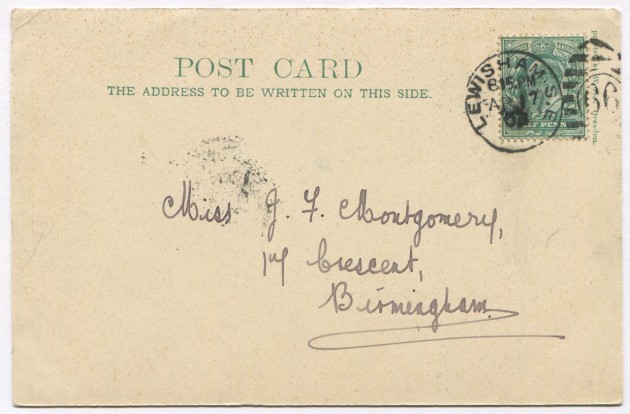 POST CARD
THE ADDRESS TO BE WRITTEN ON THIS SIDE.
LEWISHAM. S.E
8.15 PM
66
Miss J. F. Montgomery,
Crescent,
Birmingham.